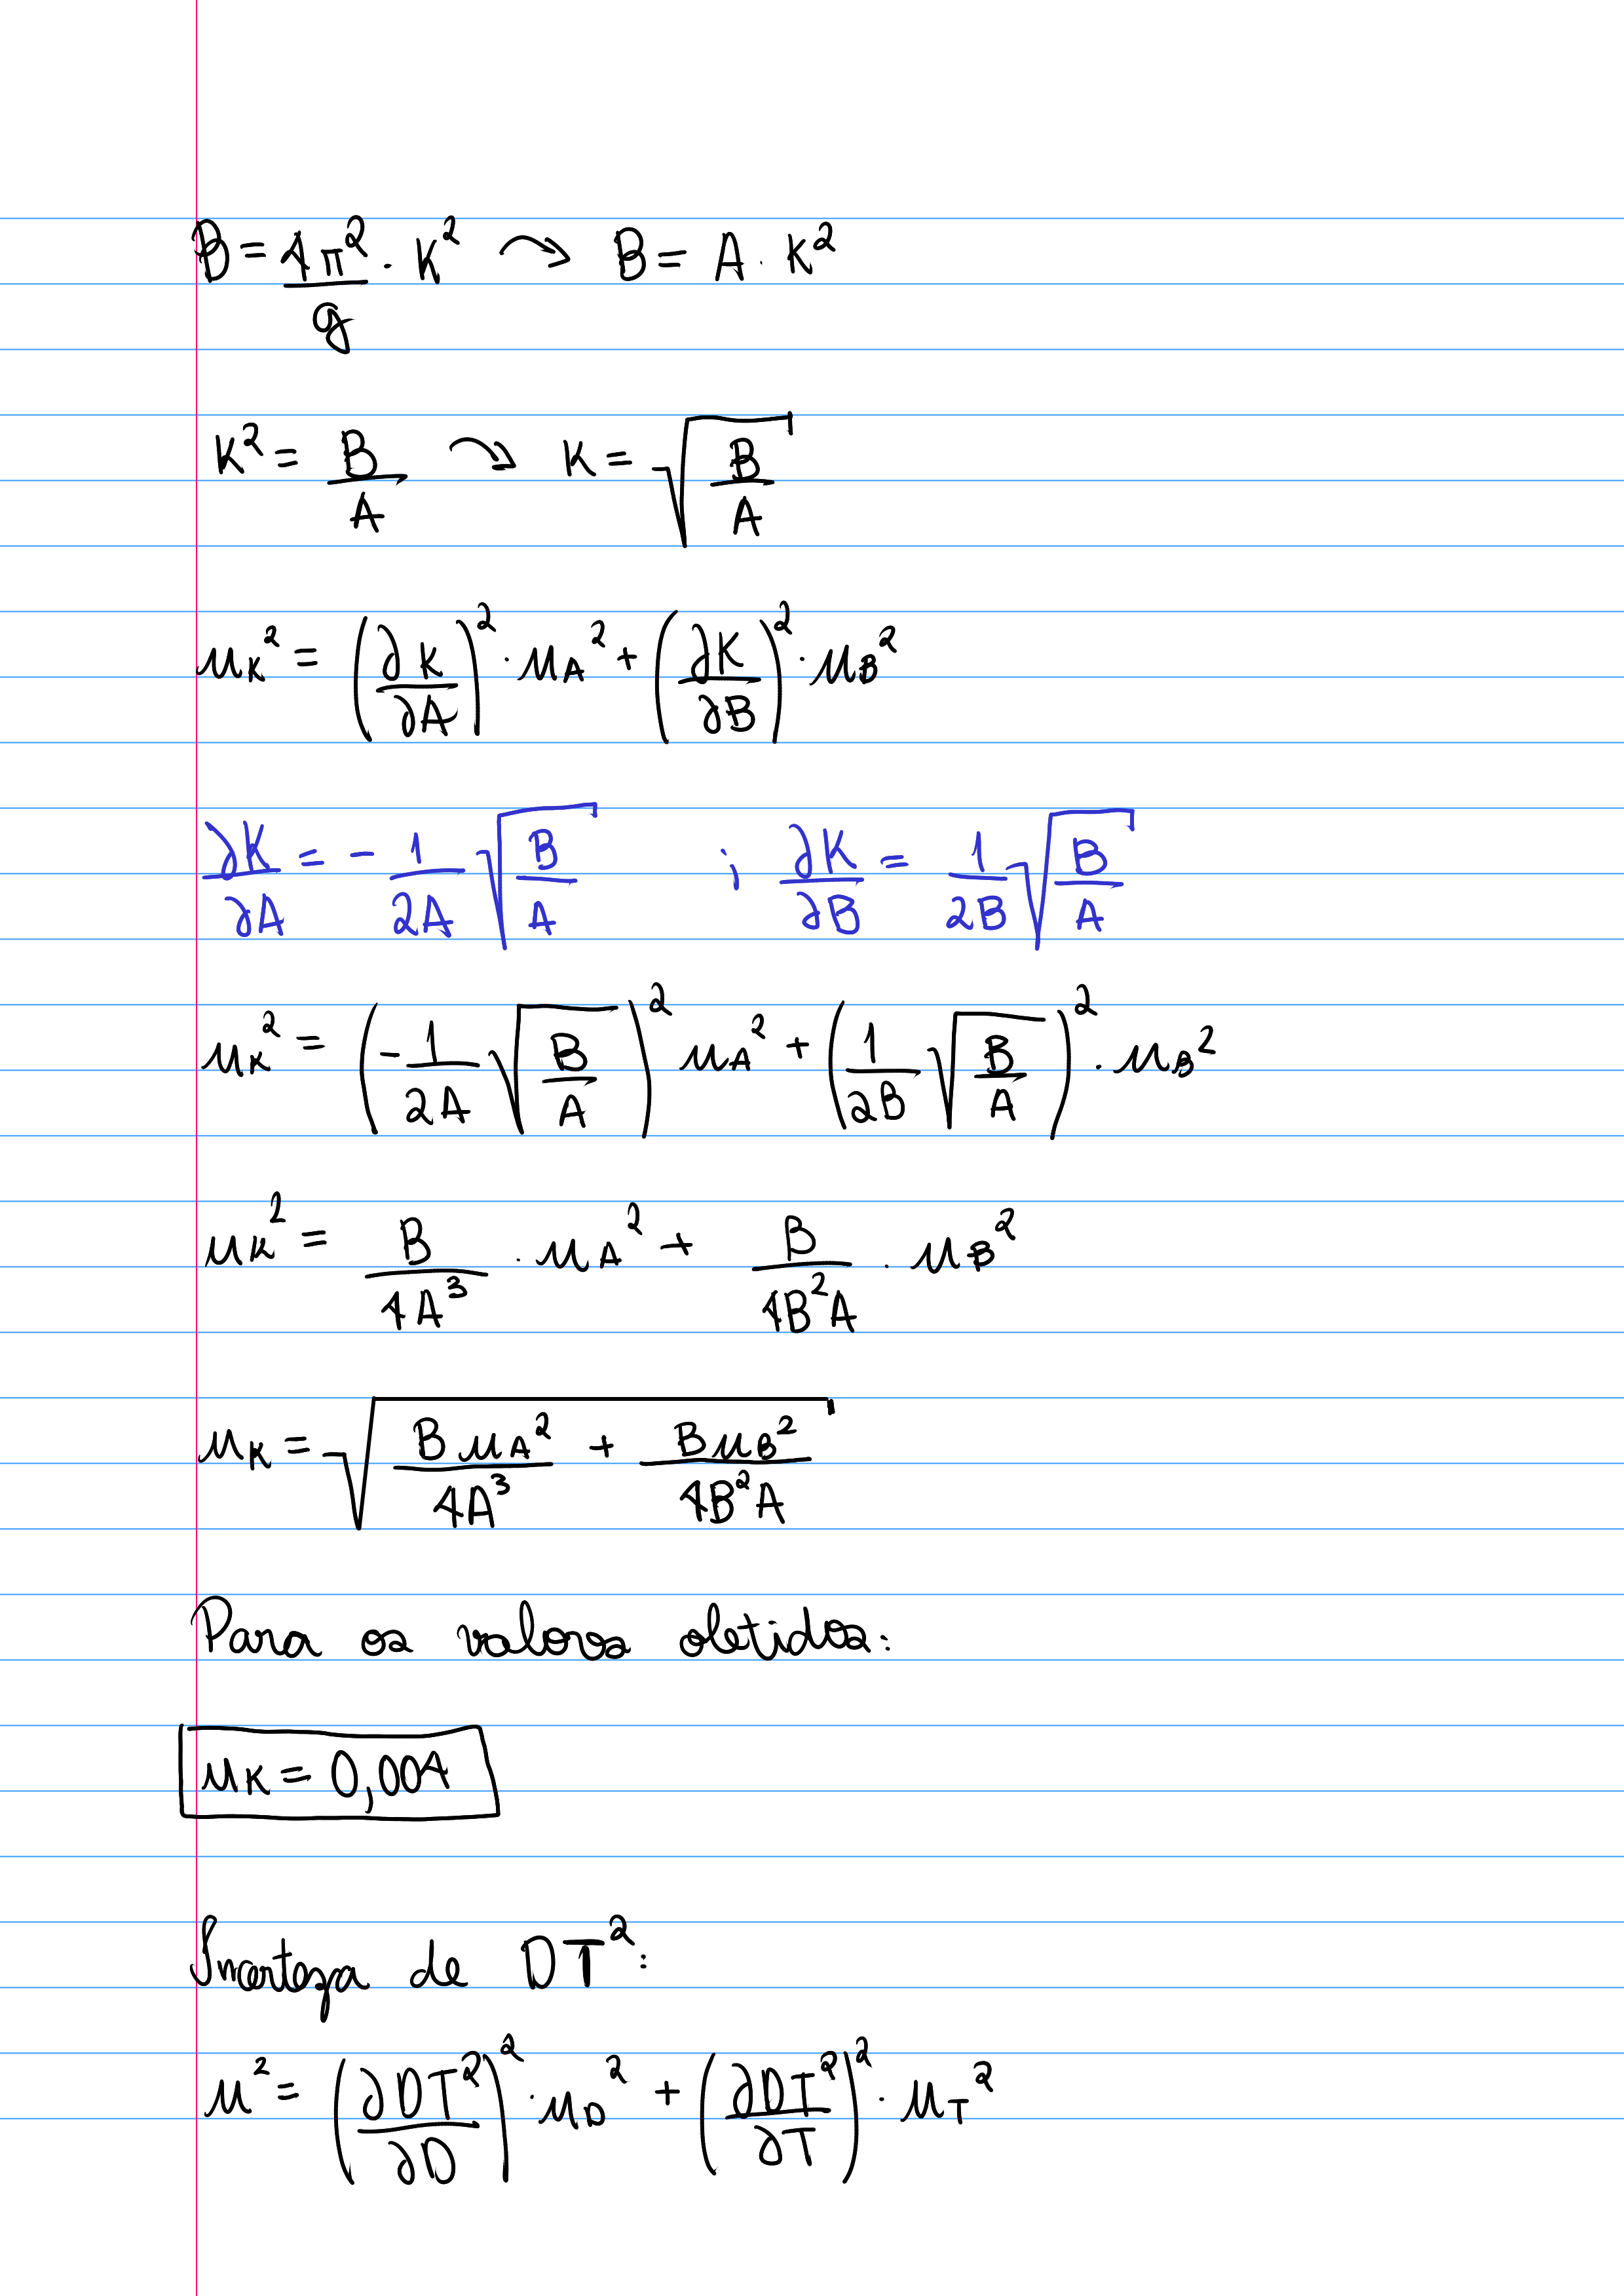 B = 4π²/g · K² → B = A · K²
K² = B/A → K = √(B/A)
μ_K² = (∂K/∂A)² · μ_A² + (∂K/∂B)² · μ_B²
∂K/∂A = - 1/2A √(B/A) ; ∂K/∂B = 1/2B √(B/A)
μ_K² = (-1/2A √(B/A))² μ_A² + (1/2B √(B/A))² · μ_B²
μ_K² = B/4A³ · μ_A² + B/4B²A · μ_B²
μ_K = √(Bμ_A²/4A³ + Bμ_B²/4B²A)
Para os valores obtidos:
μ_K = 0,004
Incerteza de DT²:
μ² = (∂DT²/∂D)² · μ_D² + (∂DT²/∂T)² · μ_T²